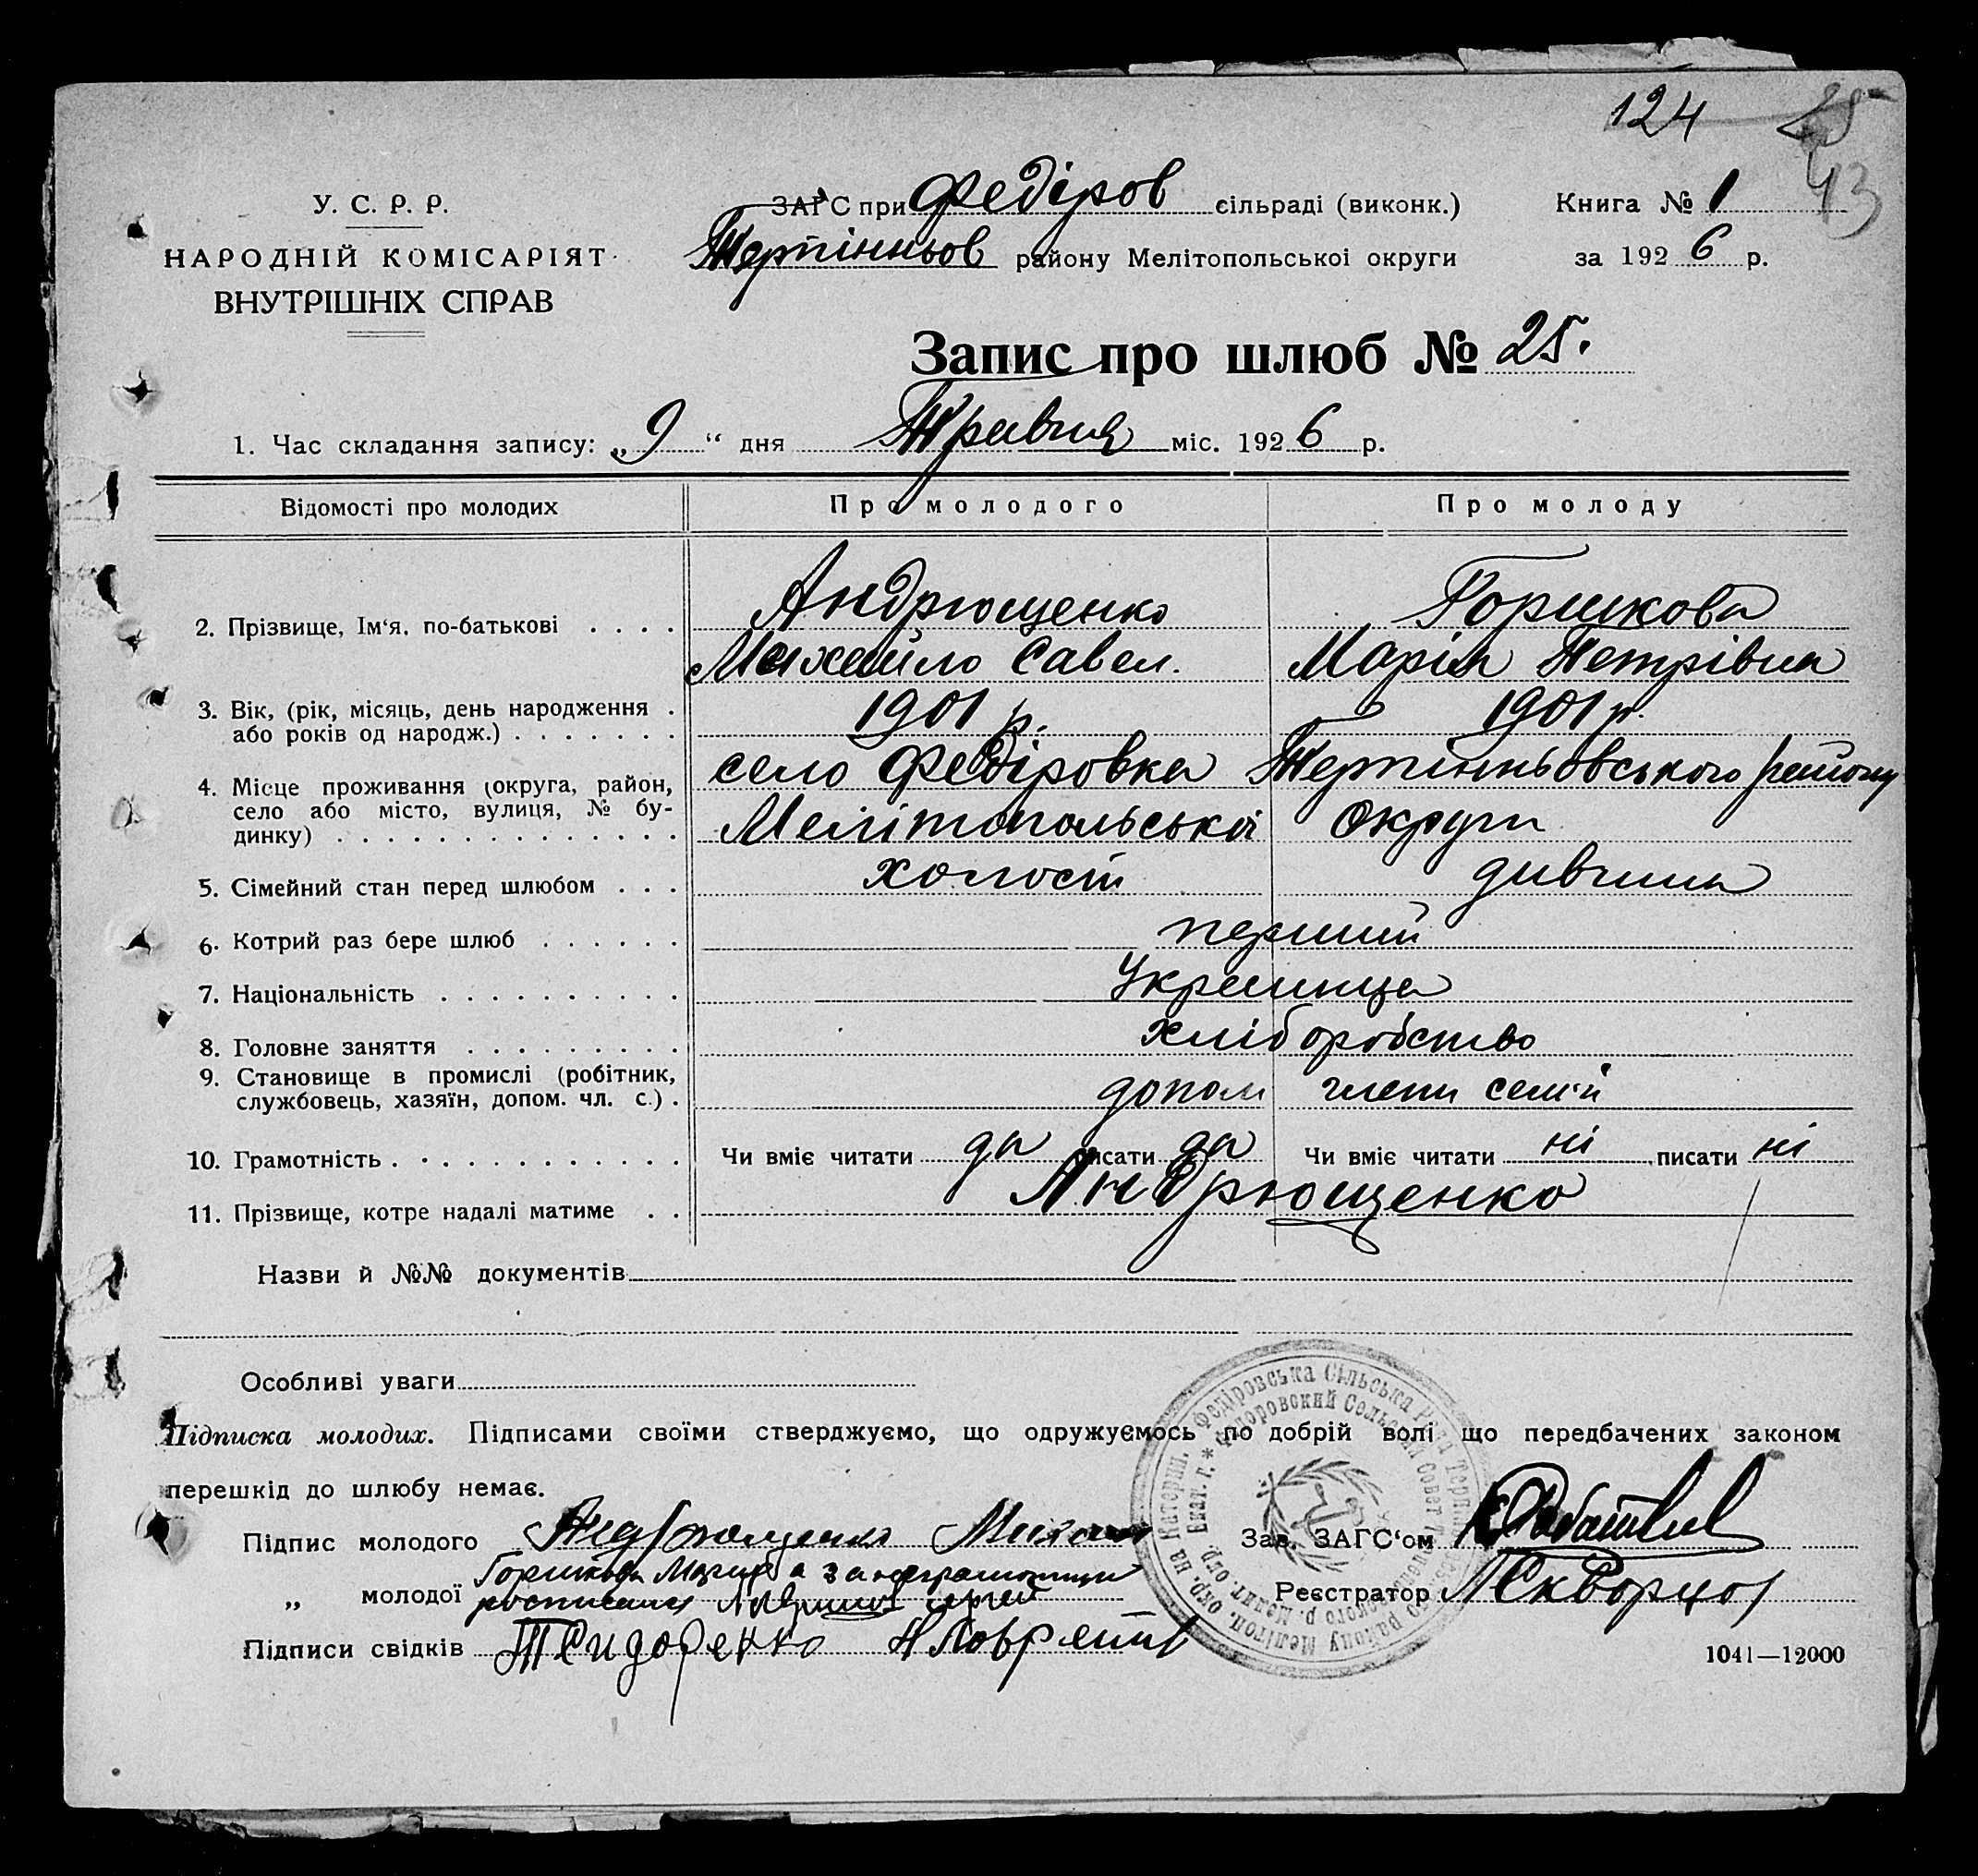 124 25
43
У. С. Р. Р.
НАРОДНІЙ КОМІСАРІЯТ
ВНУТРІШНІХ СПРАВ
ЗАГС при Федіров сільраді (виконк.)
Терпінньов району Мелітопольської округи
Книга № 1
за 1926 р.
Запис про шлюб № 25.
1. Час складання запису: „9“ дня Травня міс. 1926 р.
Відомості про молодих Про молодого Про молоду
2. Прізвище, Ім‘я, по-батькові . . . . Андрющенко Горшкова
Михайло Савел. Марія Петрівна
3. Вік, (рік, місяць, день народження . 1901 р. 1901 р.
або років од народж.) . . . . . . .
4. Місце проживання (округа, район, село Федіровка Терпінньовського району
село або місто, вулиця, № бу-
динку) . . . . . . . . . . . . . Мелітопольської Округи
5. Сімейний стан перед шлюбом . . . холост дивчина
6. Котрий раз бере шлюб . . . . . . перший
7. Національність . . . . . . . . . . Украинца
8. Головне заняття . . . . . . . . . хліборобство
9. Становище в промислі (робітник,
службовець, хазяїн, допом. чл. с.) . допом члени семїи
10. Грамотність . . . . . . . . . . . . Чи вміє читати да писати да Чи вміє читати ні писати ні
11. Прізвище, котре надалі матиме . . Андрющенко
Назви й №№ документів
Особливі уваги
Підписка молодих. Підписами своїми стверджуємо, що одружуємось по добрій волі що передбачених законом
перешкід до шлюбу немає.
Підпис молодого Андрющенко Михаил
Зав. ЗАГС‘ом
„ молодої Горшкова Мария а за неграмотную
росписался
Реєстратор Скворцов
Підписи свідків Т Сидоренко
1041—12000
Федіровська Сільська Рада району Мелітоп. окр. на Катерин.
Федоровский Сельский Совет р. Мелит. окр. Екат. г.